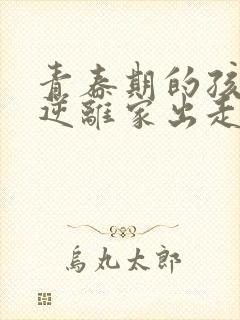 青春期的孩
逆離家出走
烏丸太郎